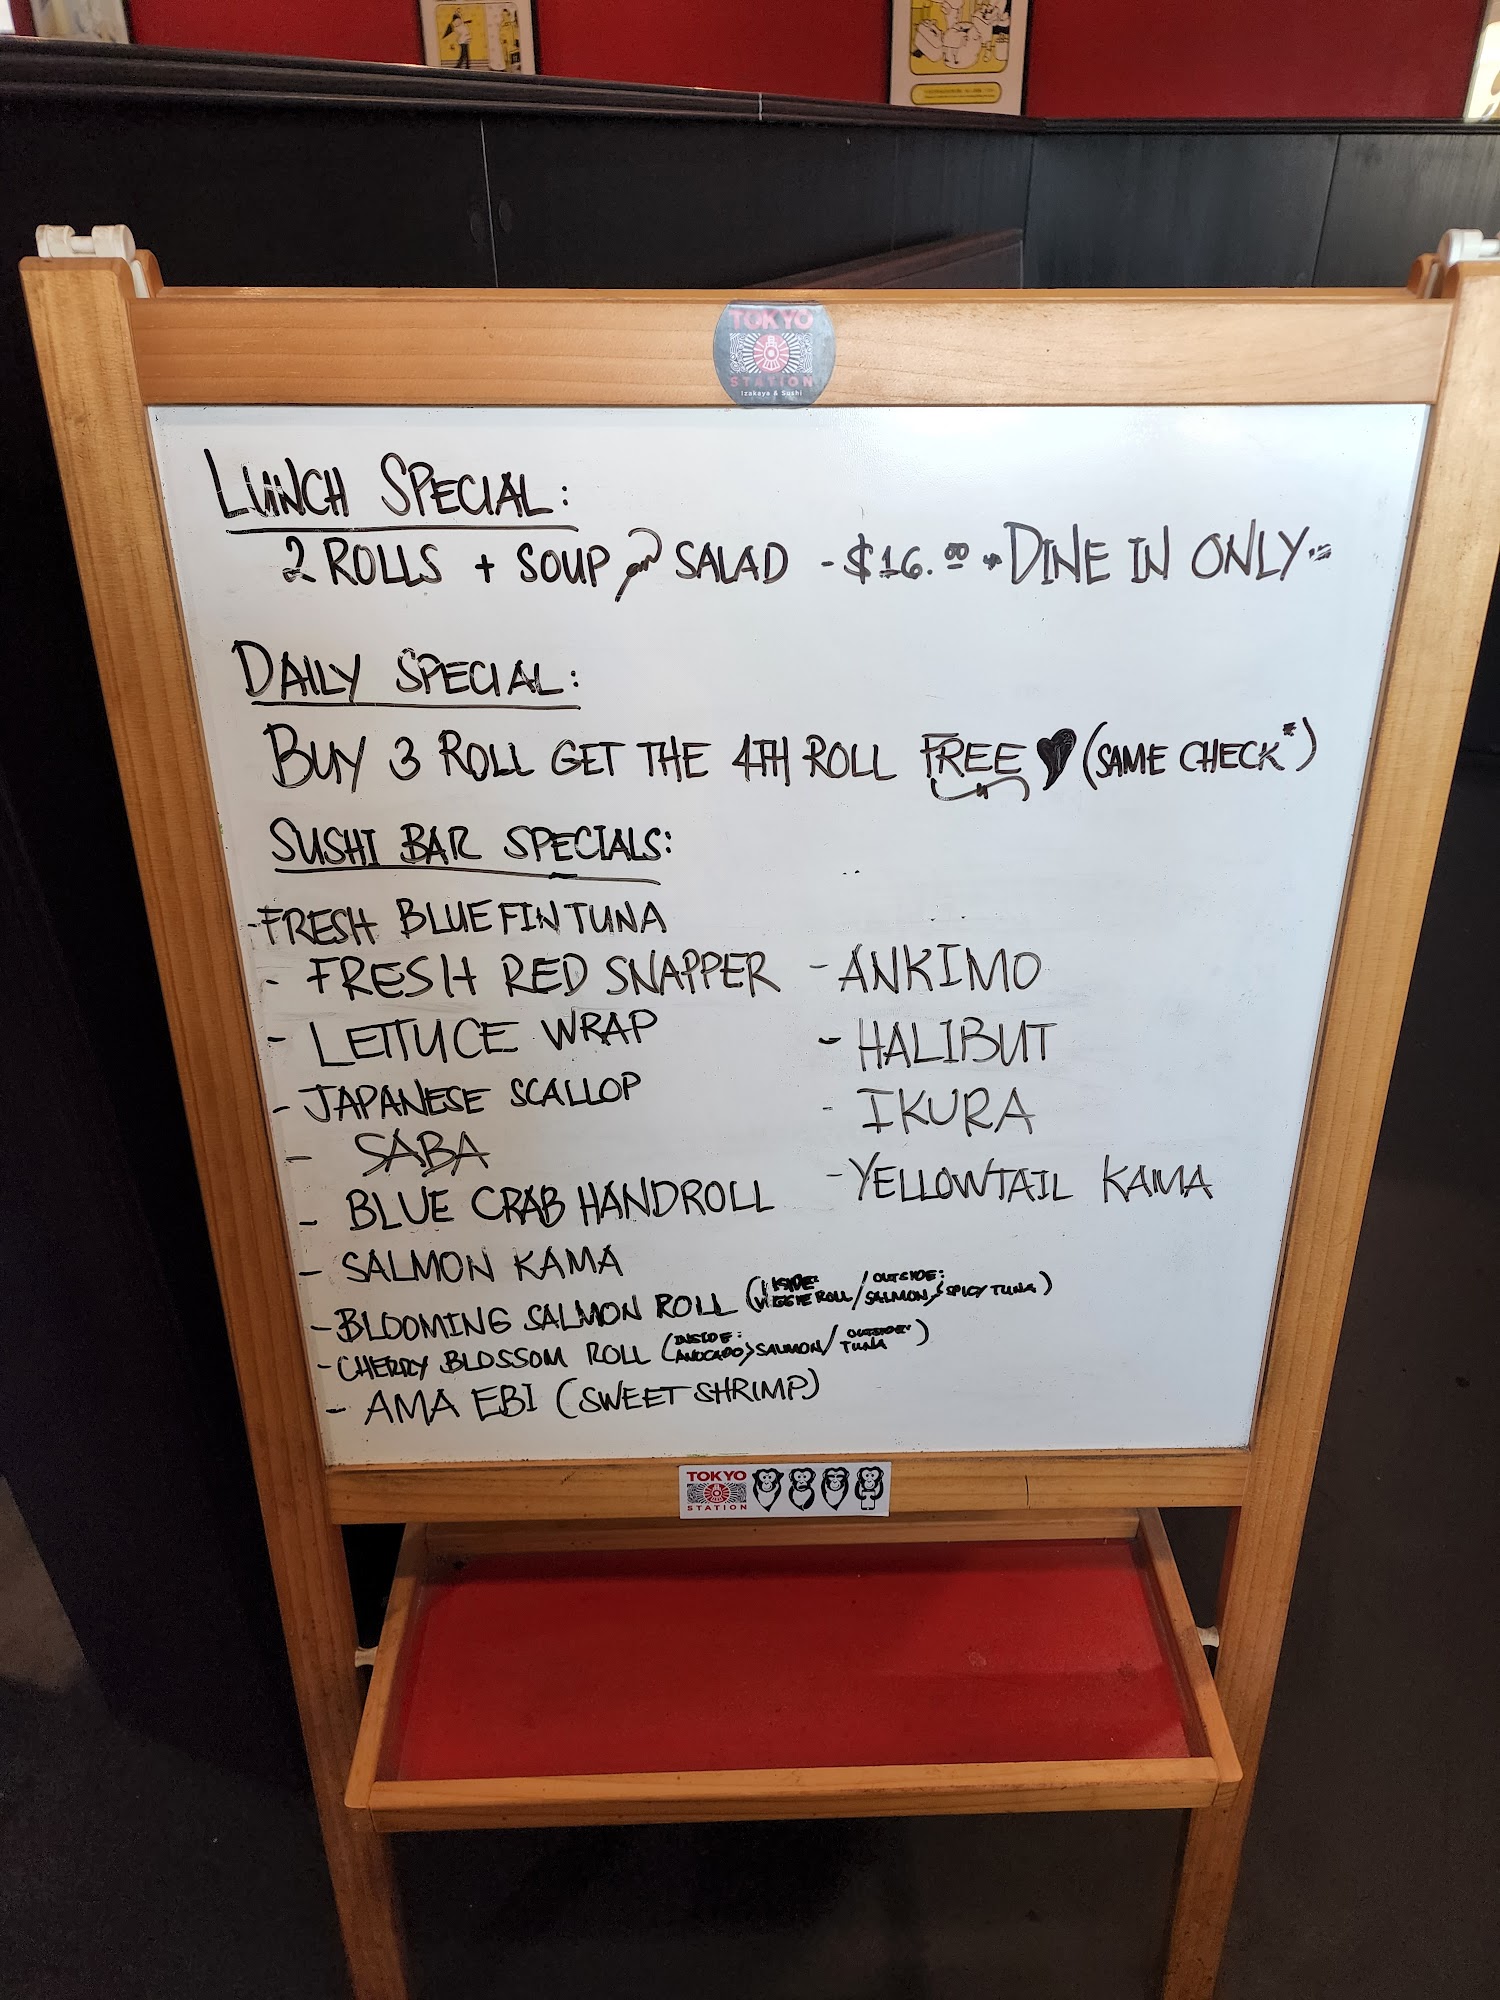 TOKYO
STATION
Izakaya & Sushi
LUNCH SPECIAL:
2 ROLLS + SOUP or SALAD - $16.00 DINE IN ONLY
DAILY SPECIAL:
BUY 3 ROLL GET THE 4TH ROLL FREE (SAME CHECK*)
SUSHI BAR SPECIALS:
-FRESH BLUEFIN TUNA
- FRESH RED SNAPPER
- LETTUCE WRAP
- JAPANESE SCALLOP
- SABA
- BLUE CRAB HANDROLL
- SALMON KAMA
- BLOOMING SALMON ROLL (INSIDE: VEGGIE ROLL / OUTSIDE: SALMON, SPICY TUNA)
- CHERRY BLOSSOM ROLL (INSIDE: AVOCADO, SALMON / OUTSIDE: TUNA)
- AMA EBI (SWEET SHRIMP)
- ANKIMO
- HALIBUT
- IKURA
- YELLOWTAIL KAMA
TOKYO
STATION